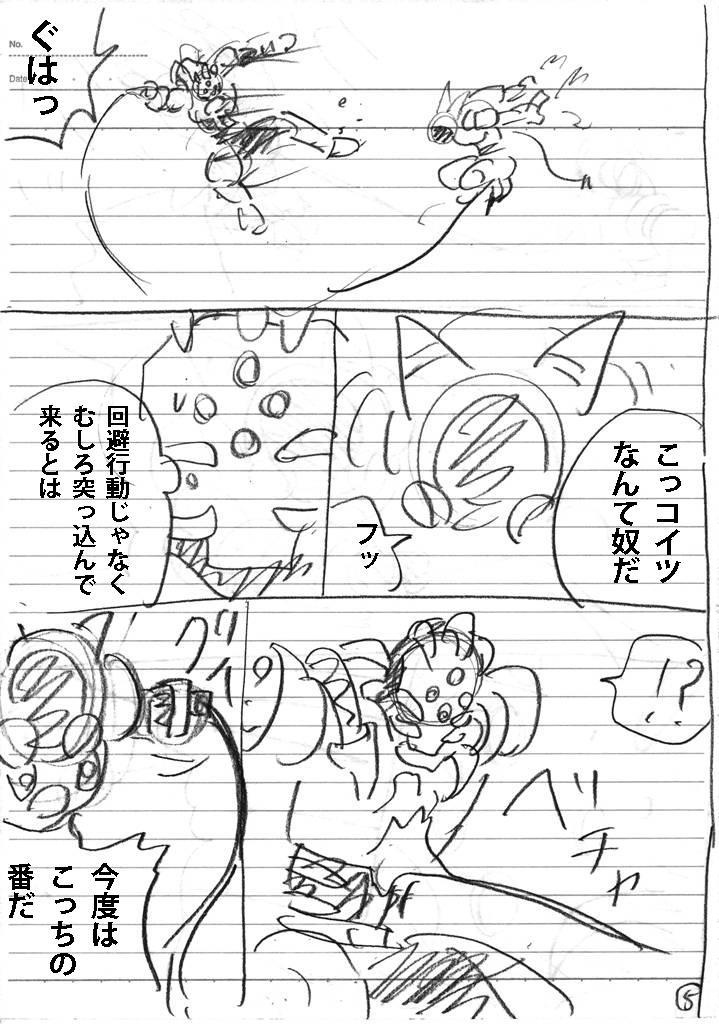 No.
Date
ぐはっ
こっコイツ
なんて奴だ
フッ
回避行動じゃなく
むしろ突っ込んで
来るとは
!?
ベチャ
グイ
今度は
こっちの
番だ
5